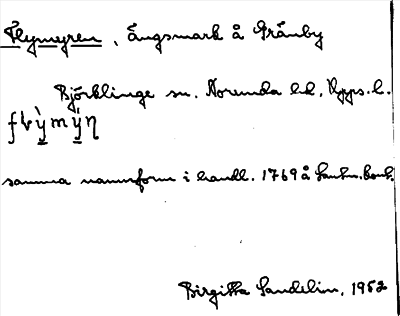 Flymyren, Ängsmark å Gränby
Björklinge sn. Norunda hd, Upps. l.
samma namnform i handl. 1769 å Lantm. kont.
Birgitta Sandelin, 1952